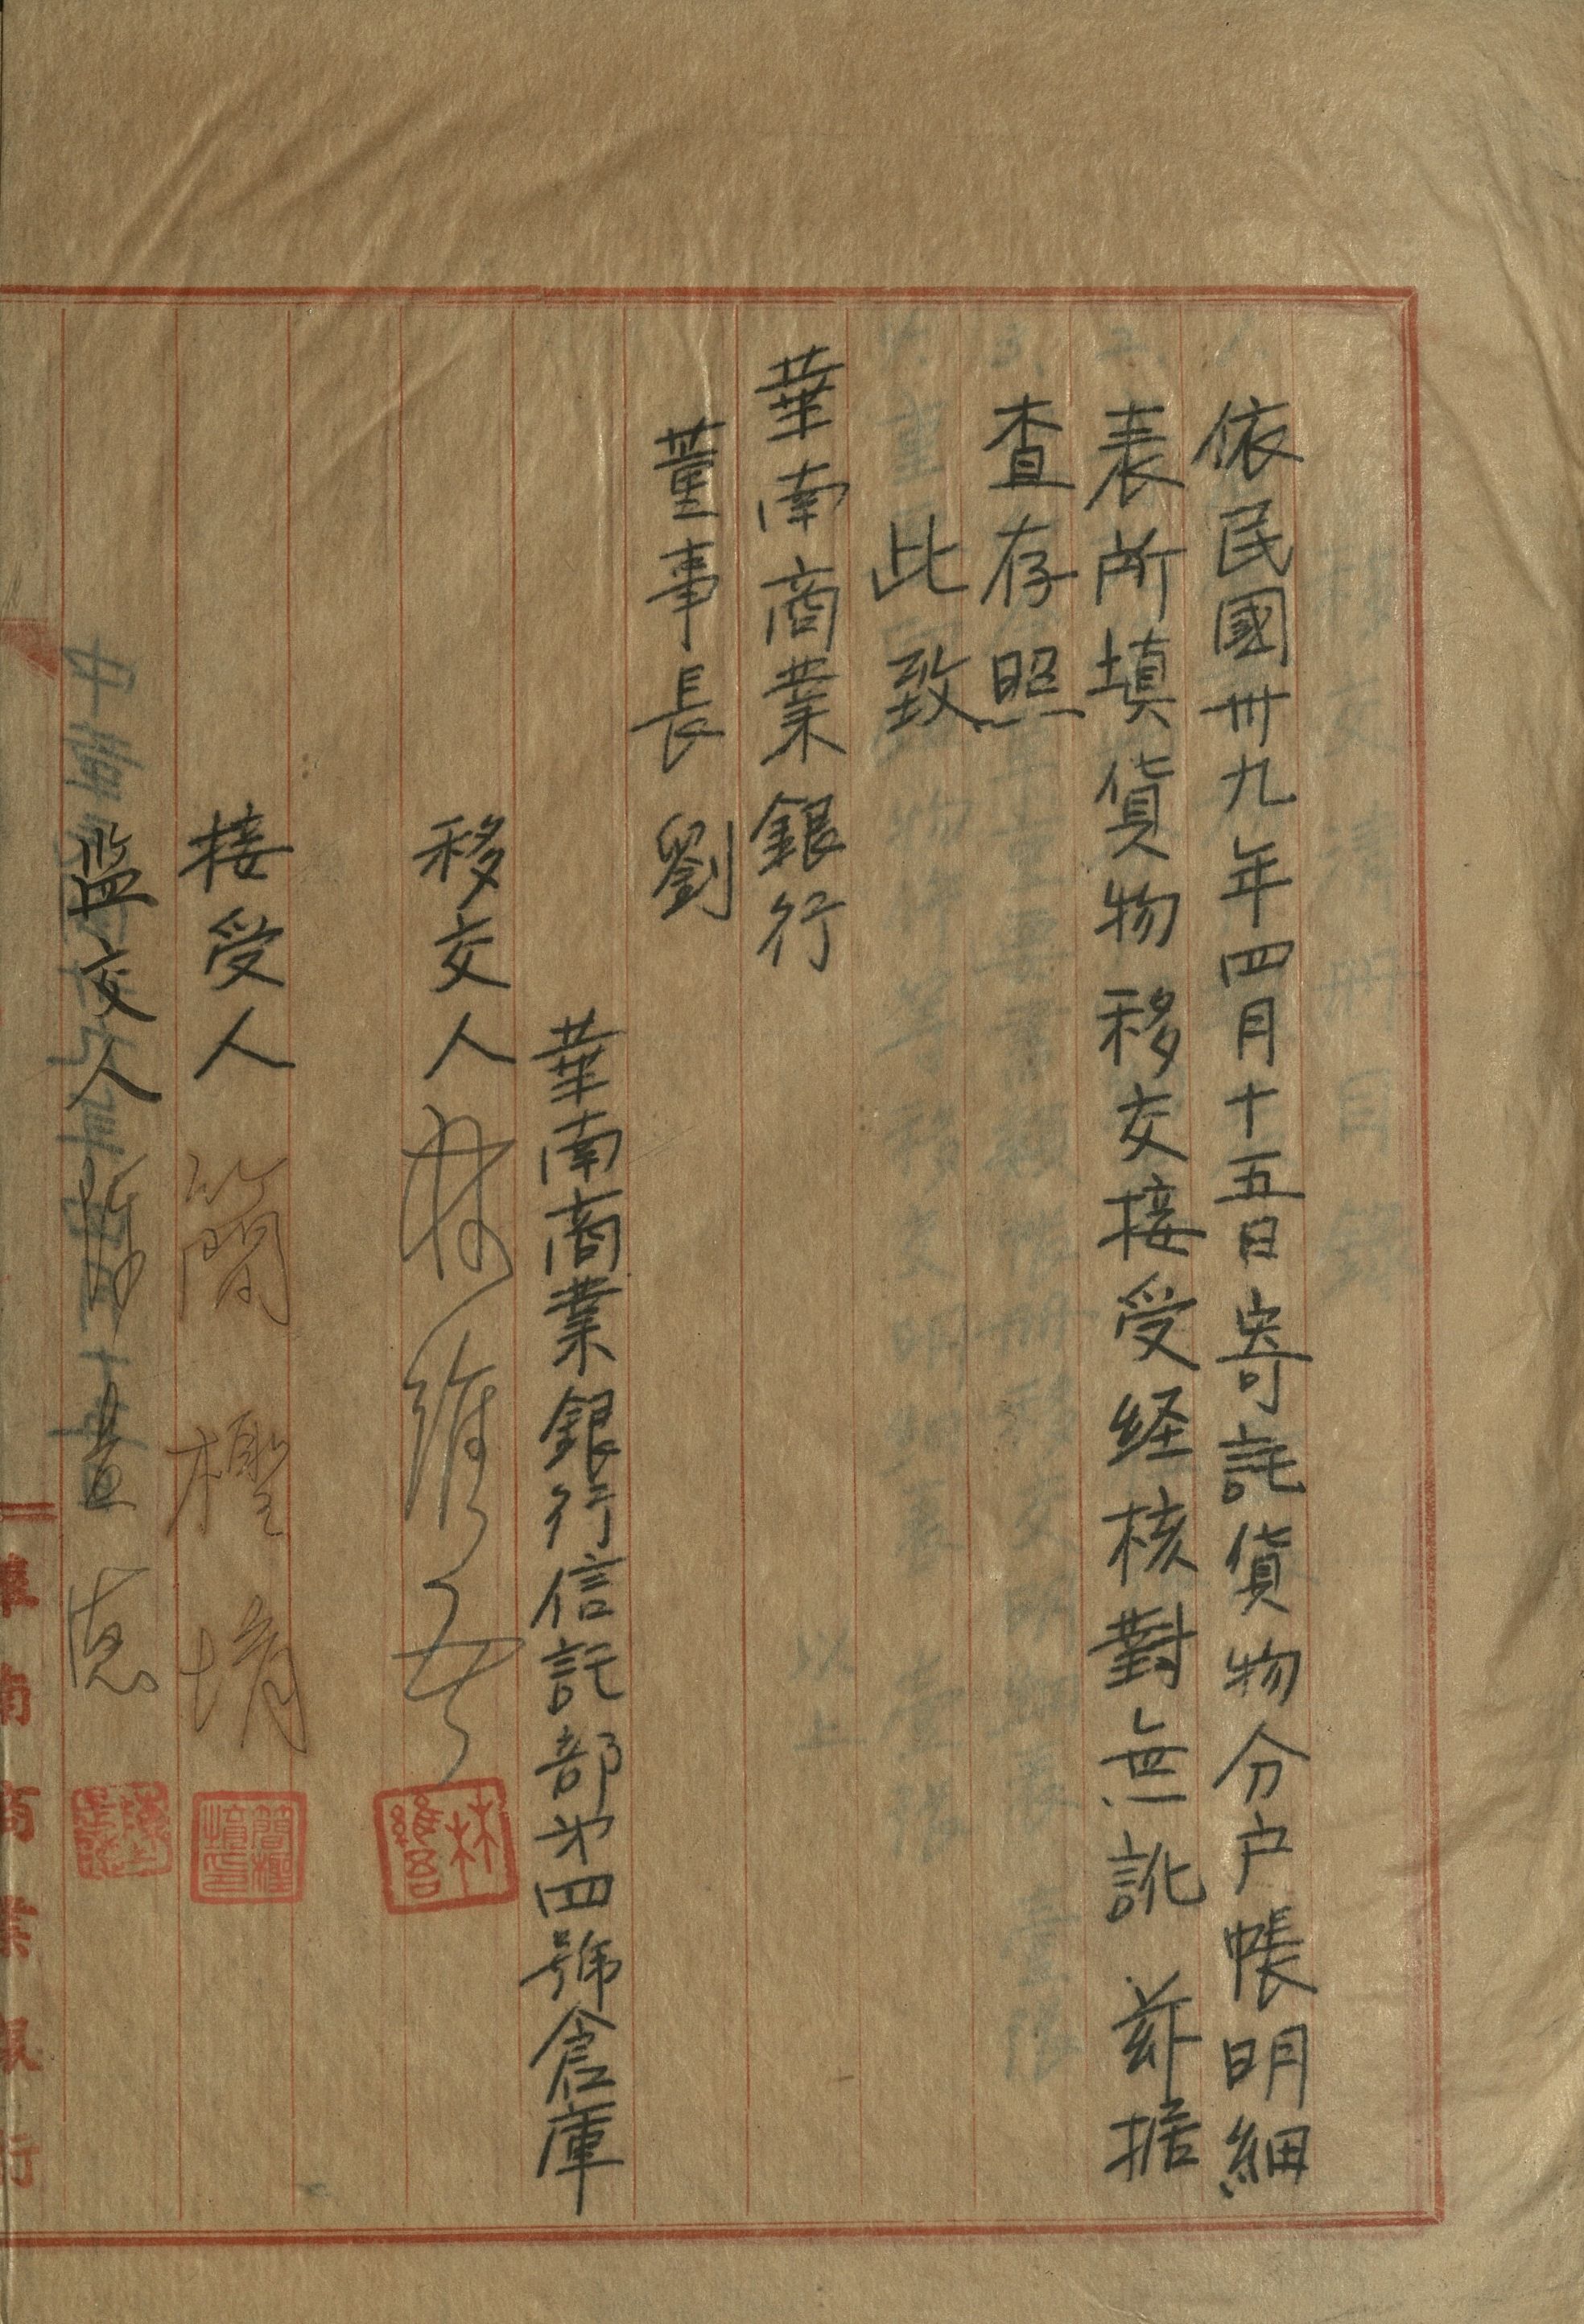 依民國卅九年四月十五日寄託貨物分户帳明細
表所填貨物移交接受経核對無訛 茲据
查存照
此致
華南商業銀行
董事長 劉
華南商業銀行信託部㐧四號倉庫
移交人 林維吾
林維吾
接受人 簡檉堉
簡檉堉印
監交人
華南商業銀行